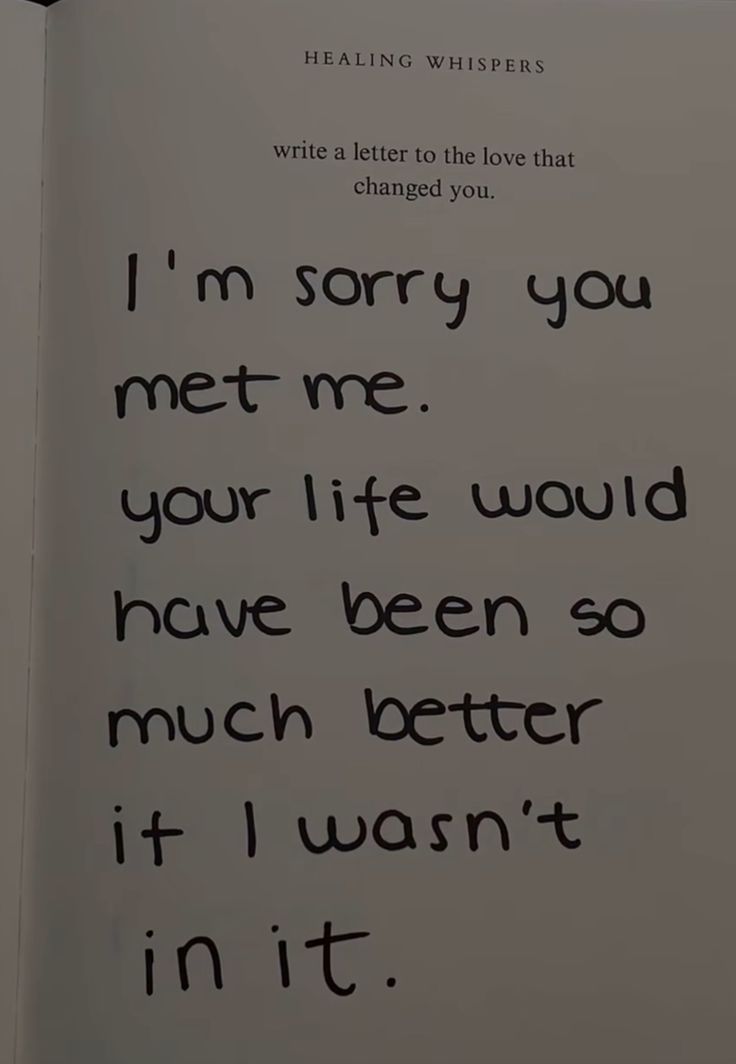 HEALING WHISPERS
write a letter to the love that
changed you.
I'm sorry you
met me.
your life would
have been so
much better
if I wasn't
in it.